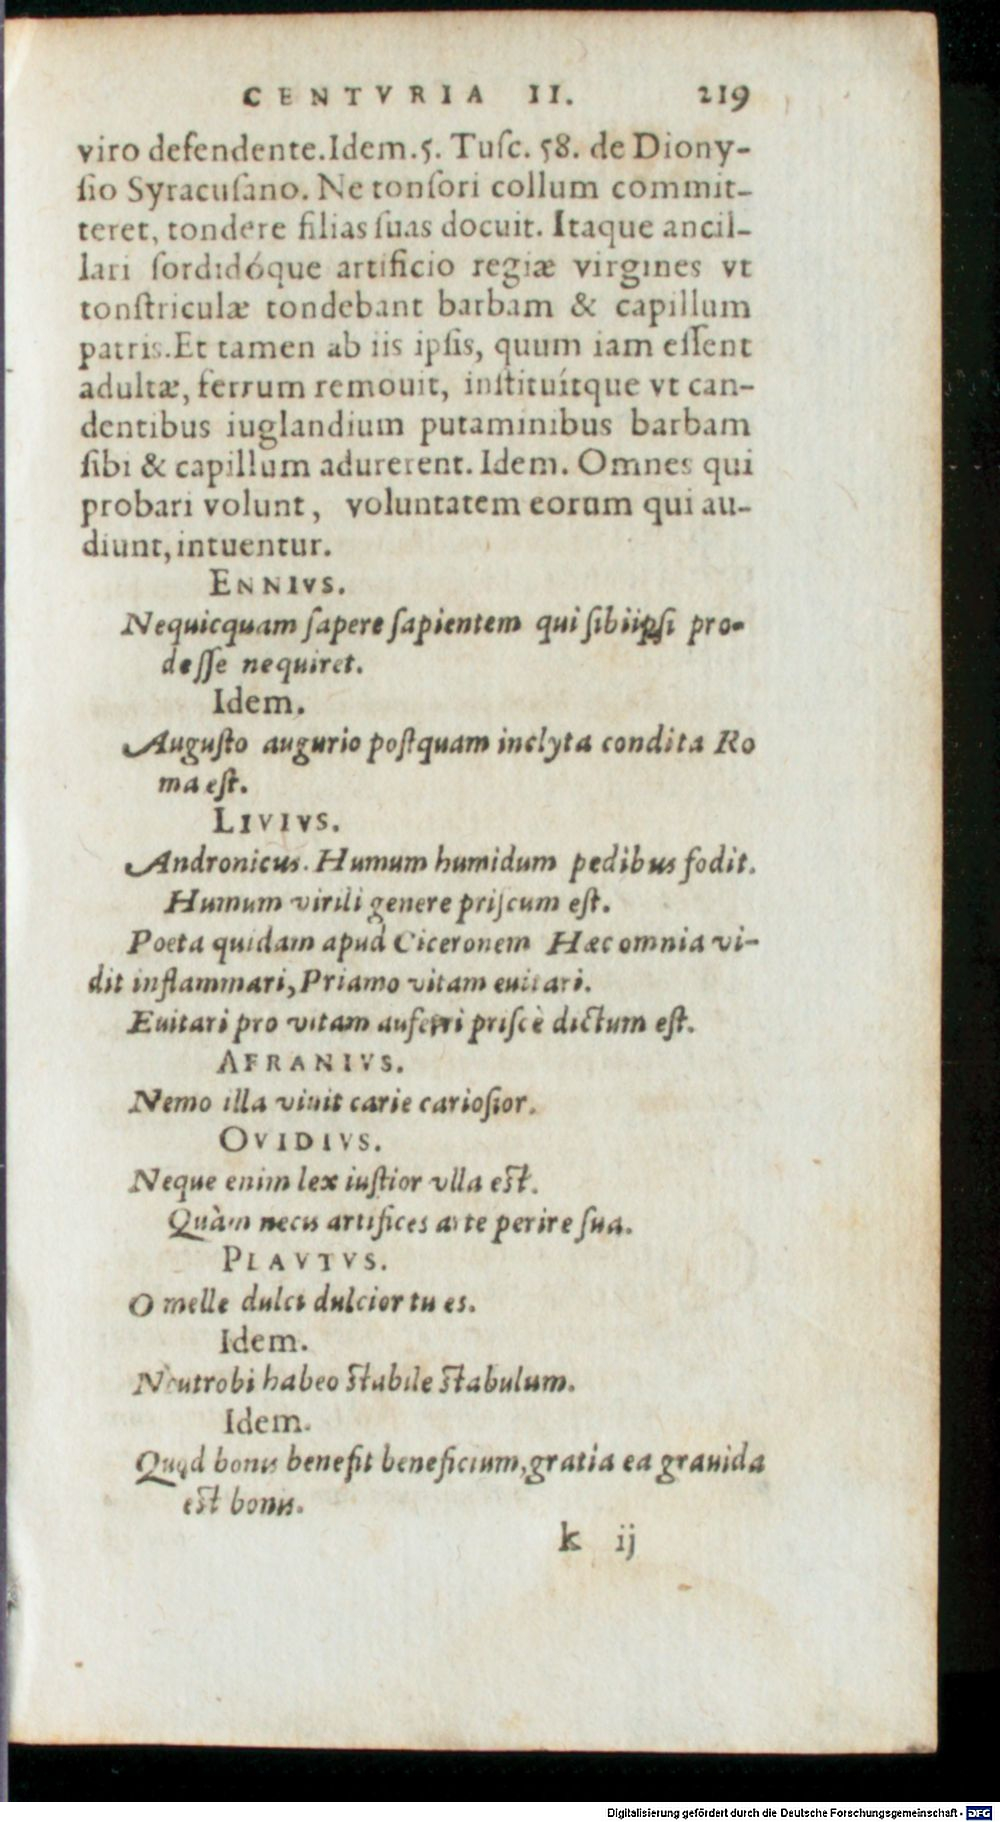 CENTVRIA II. 219
viro defendente.Idem.5. Tuſc. 58. de Diony-
ſio Syracuſano. Ne tonſori collum commit-
teret, tondere filias ſuas docuit. Itaque ancil-
lari ſordidóque artificio regiæ virgines vt
tonſtriculæ tondebant barbam & capillum
patris.Et tamen ab iis ipſis, quum iam eſſent
adultæ, ferrum remouit, inſtituítque vt can-
dentibus iuglandium putaminibus barbam
ſibi & capillum adurerent. Idem. Omnes qui
probari volunt, voluntatem eorum qui au-
diunt, intuentur.
ENNIVS.
Nequicquam ſapere ſapientem qui ſibiipſi pro-
deſſe nequiret.
Idem.
Auguſto augurio poſtquam inclyta condita Ro
ma eſt.
LIVIVS.
Andronicus. Humum humidum pedibus fodit.
Humum virili genere priſcum eſt.
Poeta quidam apud Ciceronem Hæc omnia vi-
dit inflammari, Priamo vitam euitari.
Euitari pro vitam auferri priſcè dictum eſt.
AFRANIVS.
Nemo illa viuit carie carioſior.
OVIDIVS.
Neque enim lex iuſtior vlla eſt.
Quàm necis artifices arte perire ſua.
PLAVTVS.
O melle dulci dulcior tu es.
Idem.
Neutrobi habeo ſtabile ſtabulum.
Idem.
Quod bonis benefit beneficium, gratia ea grauida
eſt bonis.
k ij
Digitalisierung gefördert durch die Deutsche Forschungsgemeinschaft - DFG